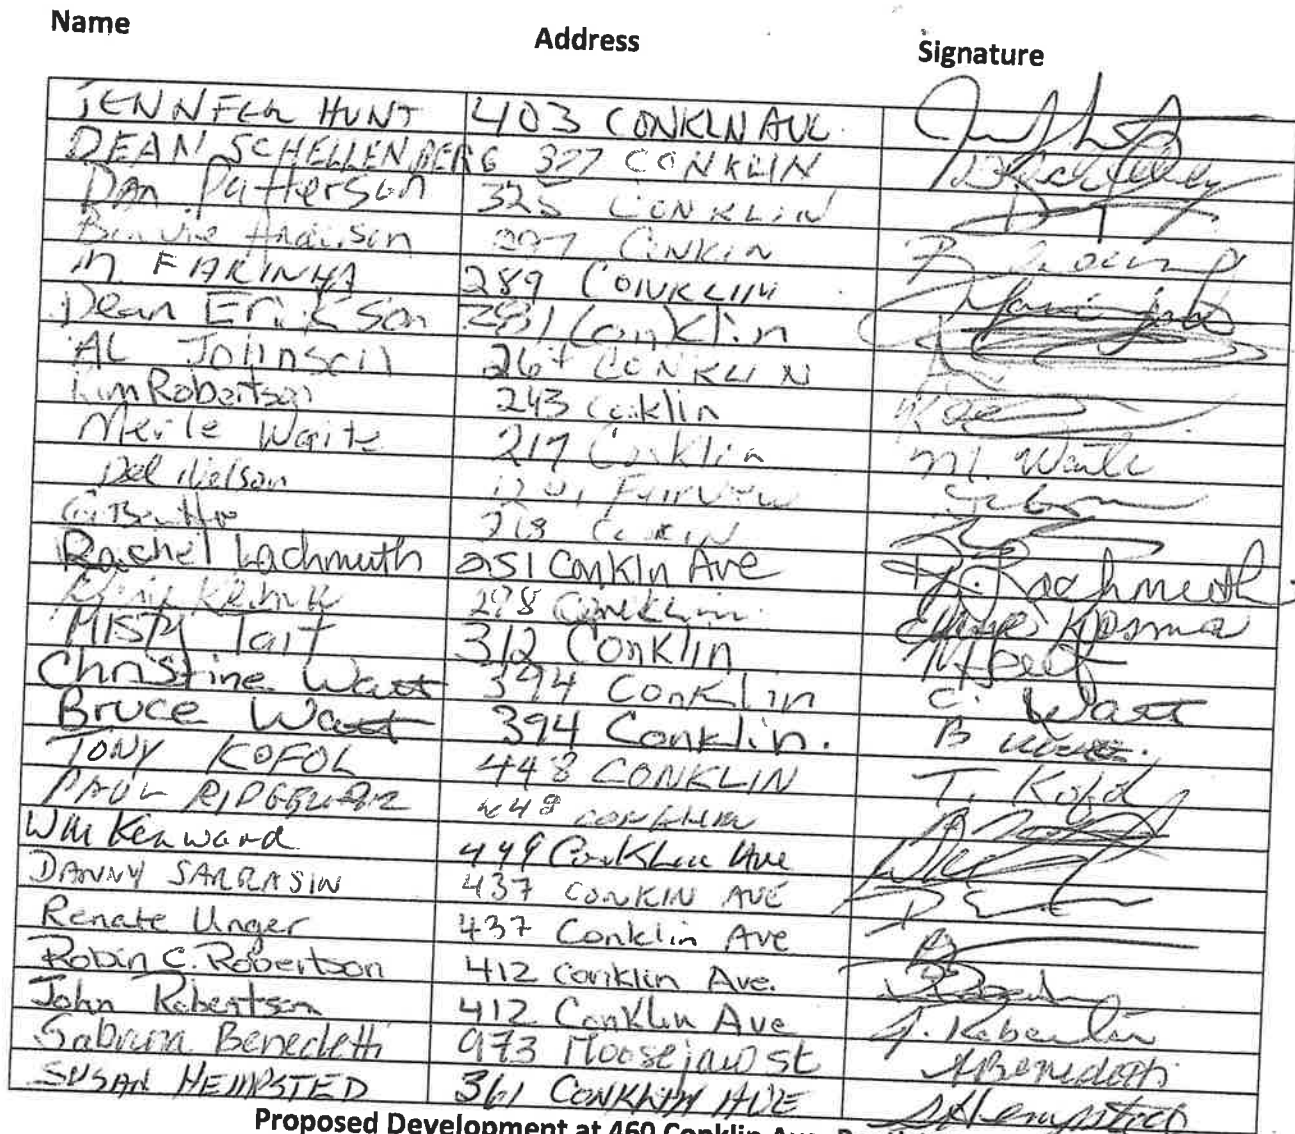 Name Address Signature
JENNFER HUNT 403 CONKLN AVE.
DEAN SCHELLENBERG 327 CONKLIN
Dan Patterson 325 CONKLIN
297 CONKIN
M FARINHA 289 CONKLIN
Dean Erickson 281 Conklin
AL Johnson 267 CONKLIN
Kim Robertson 243 Conklin
Merle Waite 217 Conklin M. Waite
Del Nelson Fairview
218 CONKIN
Rachel Lachmuth 251 Conkln Ave R. Lachmuth
278 Conklin Kosma
Misty Tait 312 Conklin
Christine Watt 394 Conklin C. Watt
Bruce Watt 394 Conklin. B
TONY KOFOL 448 CONKLIN T. Kofol
PAUL 448 CONKLIN
Wm Kenward 449 Conklin Ave
DANNY SARRASIN 437 CONKIN AVE
Renate Unger 437 Conklin Ave
Robin C. Robertson 412 Conklin Ave.
John Robertson 412 Conklin Ave J. Robertson
Sabrina Benedetti 973 Moosejaw St SBenedetti
SUSAN HEMPSTED 361 CONKLIN AVE SHempsted
Proposed Development at 460 Conklin Ave